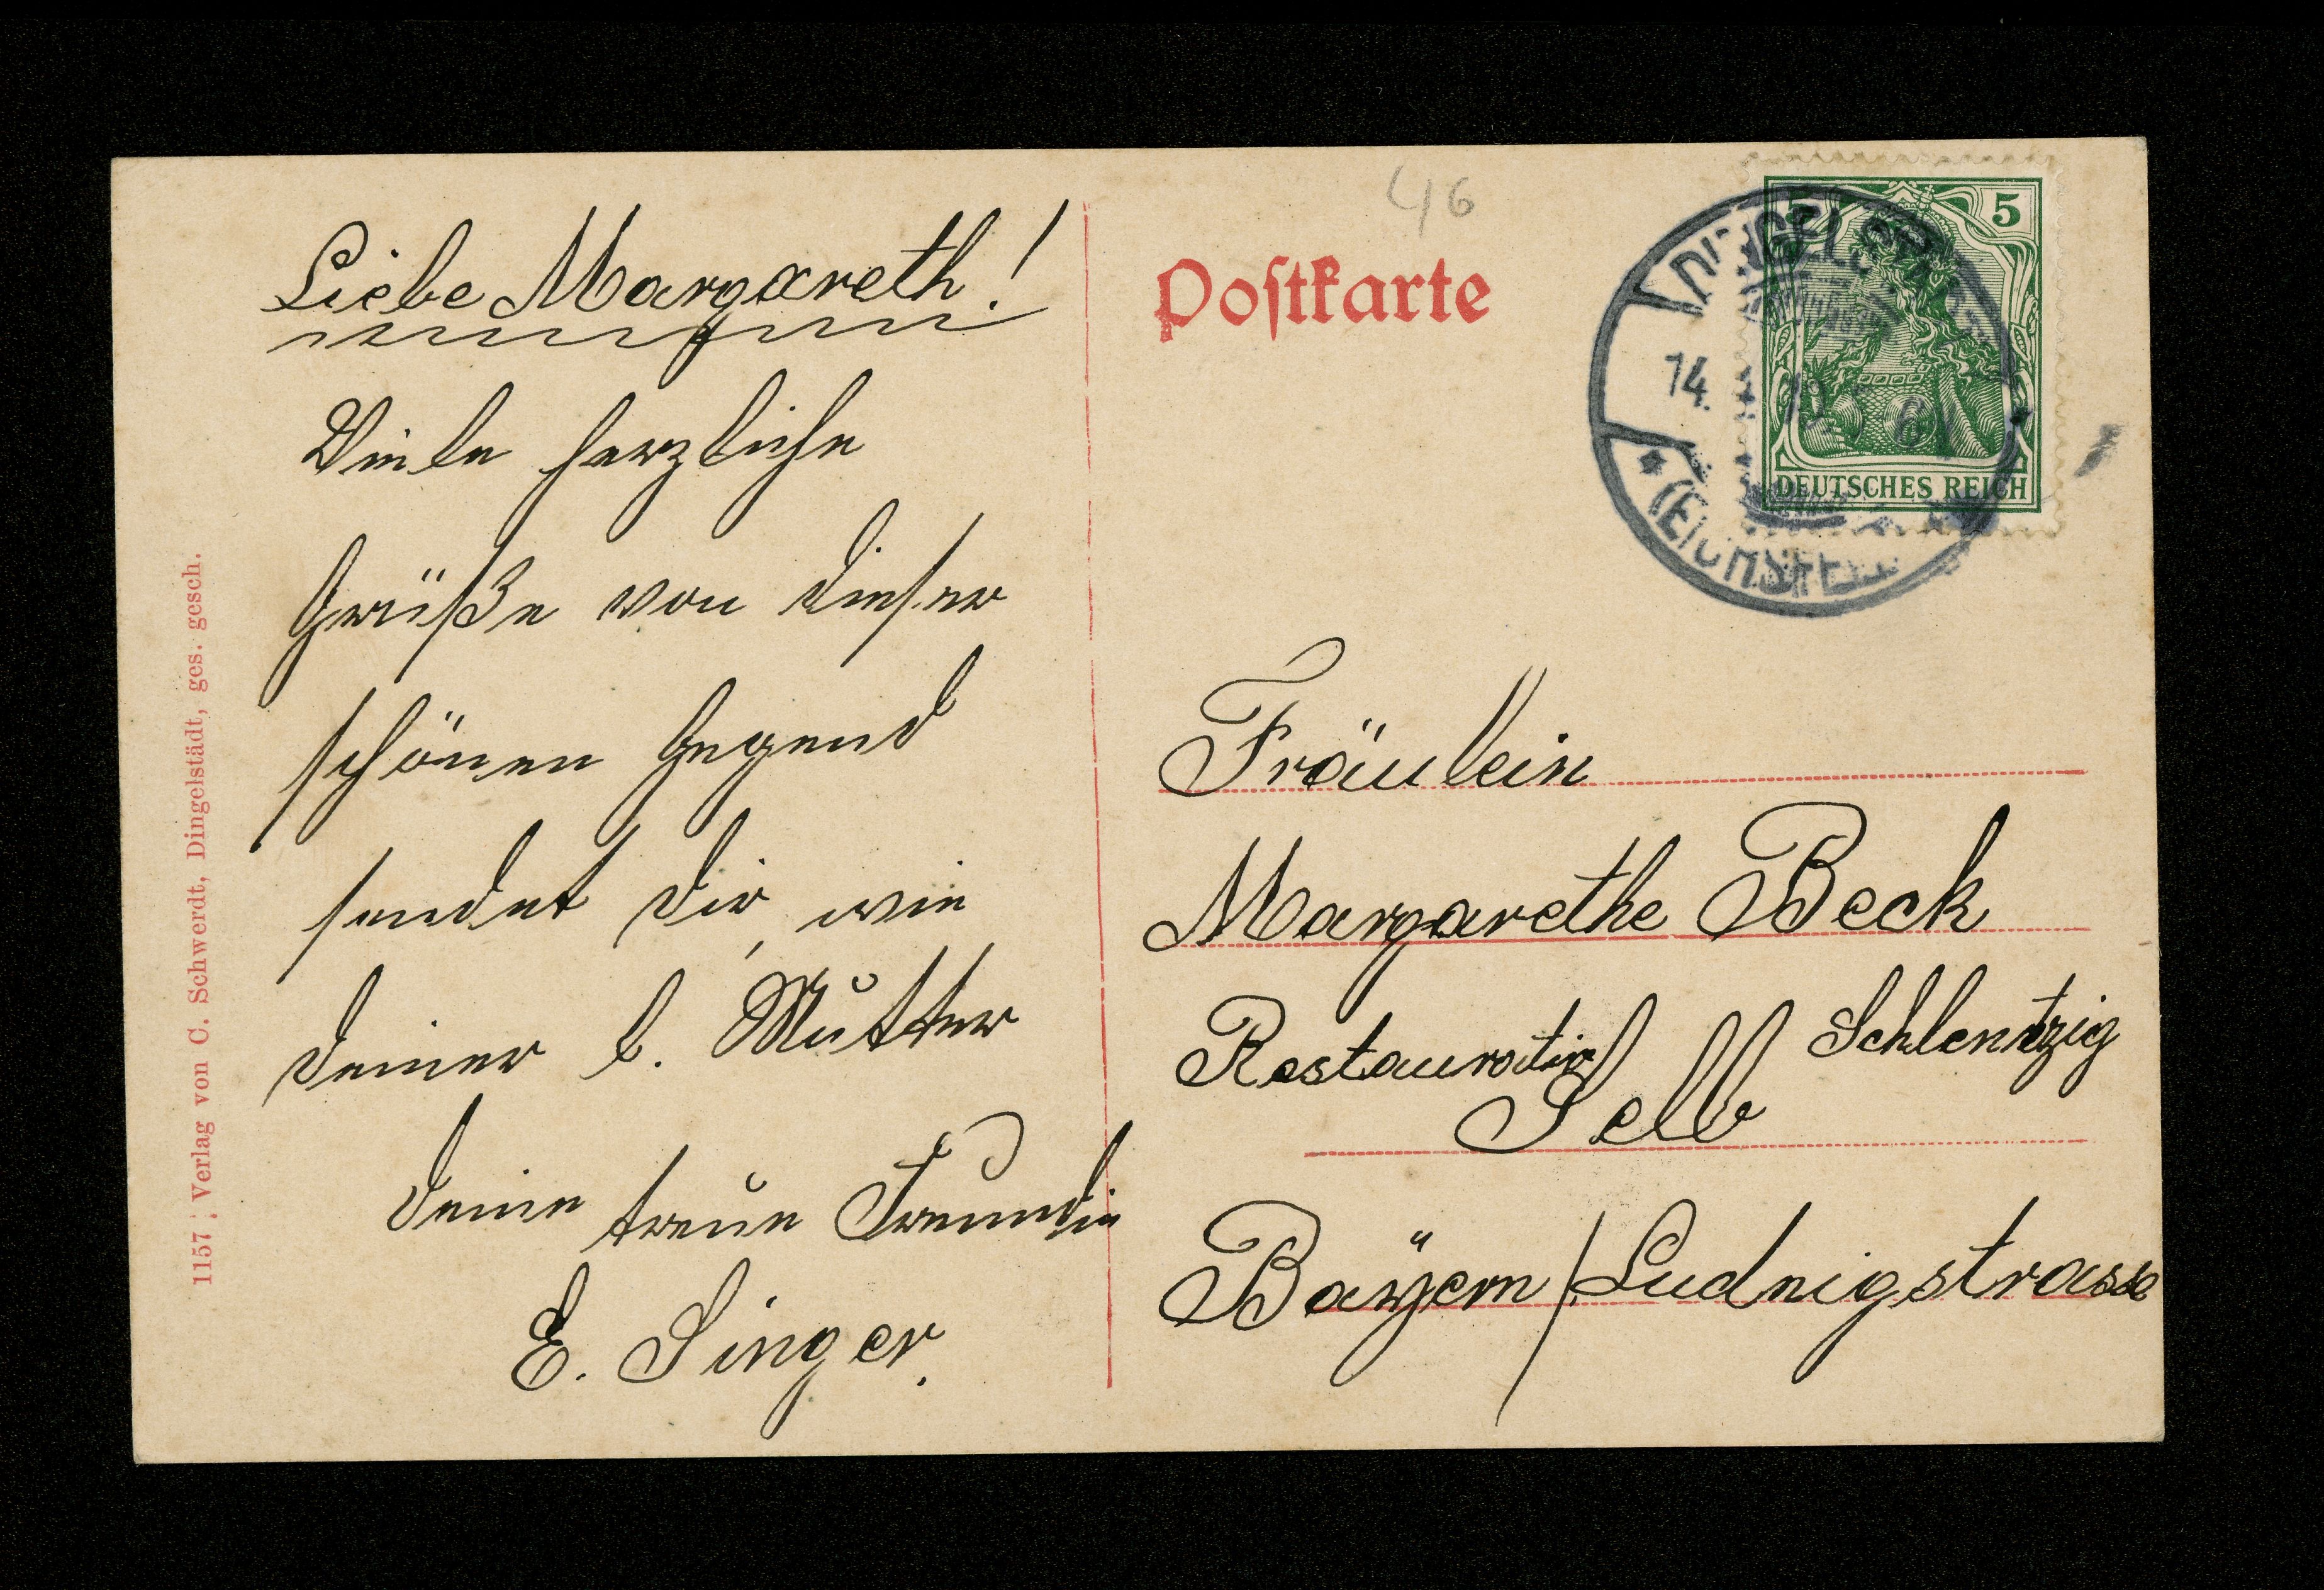 Liebe Margareth!
Viele herzliche
Grüße von dieser
schönen Gegend
sendet dir, wie
deiner l. Mutter
deine treue Freundin
E. Singer.
1157 Verlag von C. Schwerdt, Dingelstädt, ges. gesch.
46
Postkarte
5
DEUTSCHES REICH
DINGELSTÄDT
14.
(EICHSFELD)
Fräulein
Margarethe Beck
Restauration Schlentzig
Selb
Baÿern / Ludwigstrasse